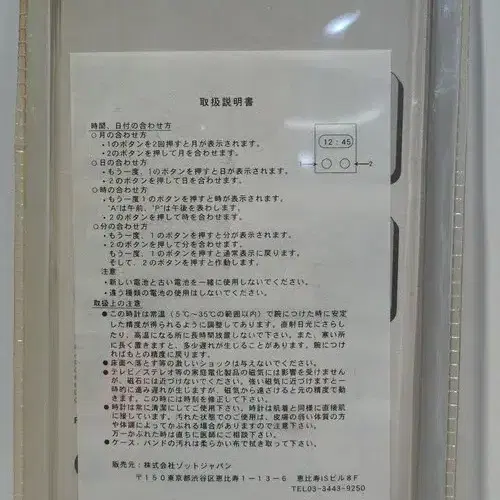 取扱説明書
時間、日付の合わせ方
○月の合わせ方
・1のボタンを2回押すと月が表示されます。
・2のボタンを押して月を合わせます。
○日の合わせ方
・もう一度、1のボタンを押すと日が表示されます。
・2のボタンを押して日を合わせます。
○時の合わせ方
・もう一度1のボタンを押すと時が表示されます。
"A"は午前、"P"は午後を表わします。
・2のボタンを押して時を合わせます。
○分の合わせ方
・もう一度、1のボタンを押すと分が表示されます。
・2のボタンを押して分を合わせます。
もう一度、1のボタンを押すと通常表示に戻ります。
そして、2のボタンを押すと作動します。
12:45
1
2
注意
・新しい電池と古い電池を一緒に使用しないでください。
・違う種類の電池の使用はしないでください。
取扱上の注意
●この時計は常温(5℃~35℃の範囲以内)で腕につけた時に安定
した精度が得られるように調整してあります。直射日光にさらし
たり、高温になる所に長時間放置しないで下さい。また、寒い所
に長く置きますと、多少遅れが生じることがあります。腕につけ
ればもとの精度に戻ります。
●床面へ落とす等の激しいショックは与えないでください。
●テレビ/ステレオ等の家庭電化製品の磁気には影響を受けません
が、磁石には近づけないでください。強い磁気に近づけますと一
時的に進み遅れが生じますが、磁気から遠ざけると元の精度で動
きます。この時には時刻を修正して下さい。
●時計は常に清潔にしてご使用下さい。時計は肌着と同様に直接肌
に接しています。汚れた状態でのご使用は、皮膚の弱い体質の方
や体調によってかぶれる場合がありますのでご注意下さい。
万一かぶれた時は直ちに医師にご相談下さい。
●ケース、バンドの汚れは柔らかい布で拭き取って下さい。
販売元:株式会社ゾットジャパン
〒150東京都渋谷区恵比寿1-13-6 恵比寿ISビル8F
TEL03-3443-9250